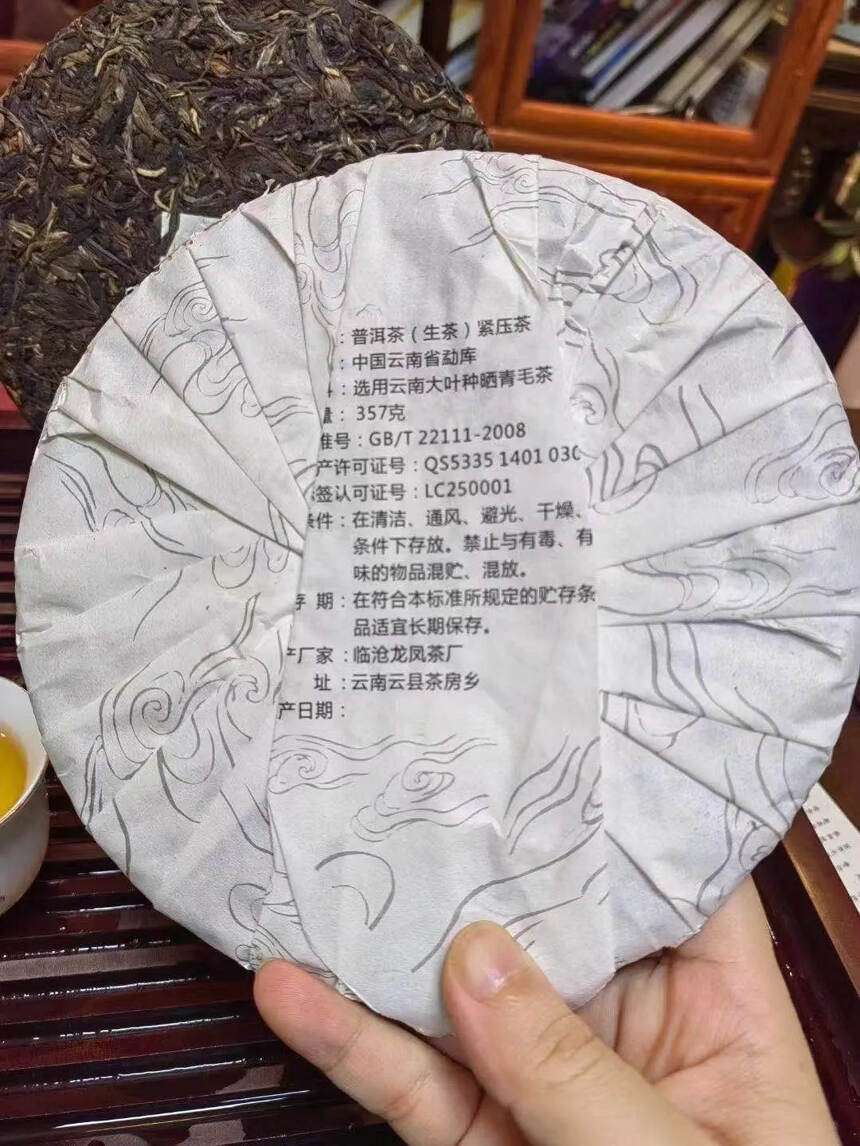 ：普洱茶（生茶）紧压茶
：中国云南省勐库
：选用云南大叶种晒青毛茶
量： 357克
准号：GB/T 22111-2008
产许可证号：QS5335 1401 030
签认可证号：LC250001
条件：在清洁、通风、避光、干燥、
条件下存放。禁止与有毒、有
味的物品混贮、混放。
存 期：在符合本标准所规定的贮存条
品适宜长期保存。
产厂家 ：临沧龙凤茶厂
址 ：云南云县茶房乡
产日期：